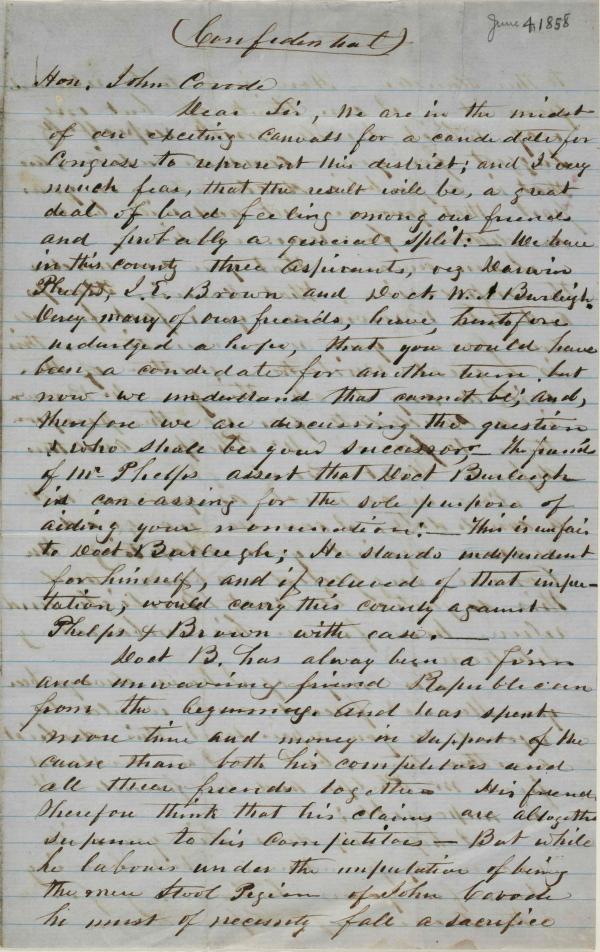 June 4, 1858
(Confidential)
Hon. John Covode
Dear Sir, We are in the midst
of an exciting canvass for a candidate for
Congress to represent this district; and I very
much fear, that the result will be, a great
deal of bad feeling among our friends
and probably a general split:— We have
in this county three aspirants, viz Darwin
Phelps, J. E. Brown and Doct. W. A Burleigh.
Very many of our friends, have, heretofore,
indulged a hope, that you would have
been a candidate for another term, but
now we understand that cannot be; and,
therefore we are discussing the question
who shall be your successor;— The friends
of Mr Phelps assert that Doct Burleigh
is canvassing for the sole purpose of
aiding your nomination:— This is unfair
to Doct Burleigh; He stands independent
for himself, and if relieved of that impu-
tation, would carry this county against
Phelps & Brown with ease.—
Doct B. has alway been a firm
and unwavering friend Republican
from the beginning. And has spent
more time and money in support of the
cause than both his competitors and
all their friends together His friends
therefore think that his claims are altogether
superior to his competitors — But while
he labours under the imputation of being
the mere Stool Pigion of John Covode
he must of necessity fall a sacrifice